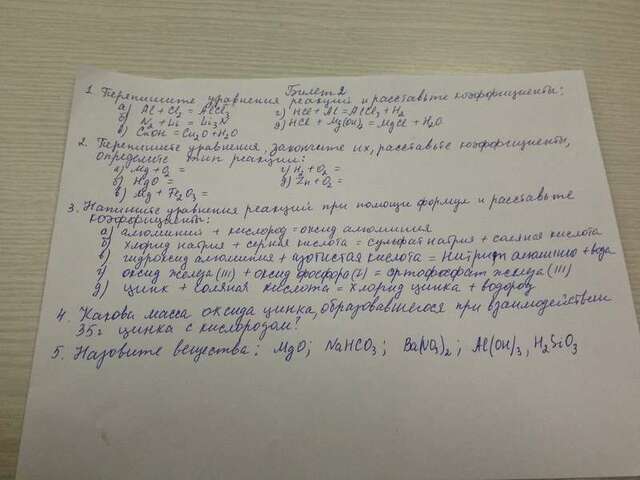 Билет 2
1. Перепишите уравнения реакций и расставьте коэффициенты:
а) Al + Cl₂ = AlCl₃ г) HCl + Al = AlCl₃ + H₂
б) N₂ + Li = Li₃N д) HCl + Mg(OH)₂ = MgCl + H₂O
в) CuOH = Cu₂O + H₂O
2. Перепишите уравнения, закончите их, расставьте коэффициенты,
определите тип реакции:
а) Mg + O₂ = г) H₂ + O₂ =
б) HgO = д) Zn + O₂ =
в) Mg + Fe₂O₃ =
3. Напишите уравнения реакций при помощи формул и расставьте
коэффициенты:
а) алюминий + кислород = оксид алюминия
б) хлорид натрия + серная кислота = сульфат натрия + соляная кислота
в) гидроксид алюминия + азотистая кислота = нитрит алюминия + вода
г) оксид железа (III) + оксид фосфора (V) = ортофосфат железа (III)
д) цинк + соляная кислота = хлорид цинка + водород
4. Какова масса оксида цинка, образовавшегося при взаимодействии
35 г цинка с кислородом?
5. Назовите вещества: MgO; NaHCO₃; Ba(NO₃)₂; Al(OH)₃, H₂SiO₃